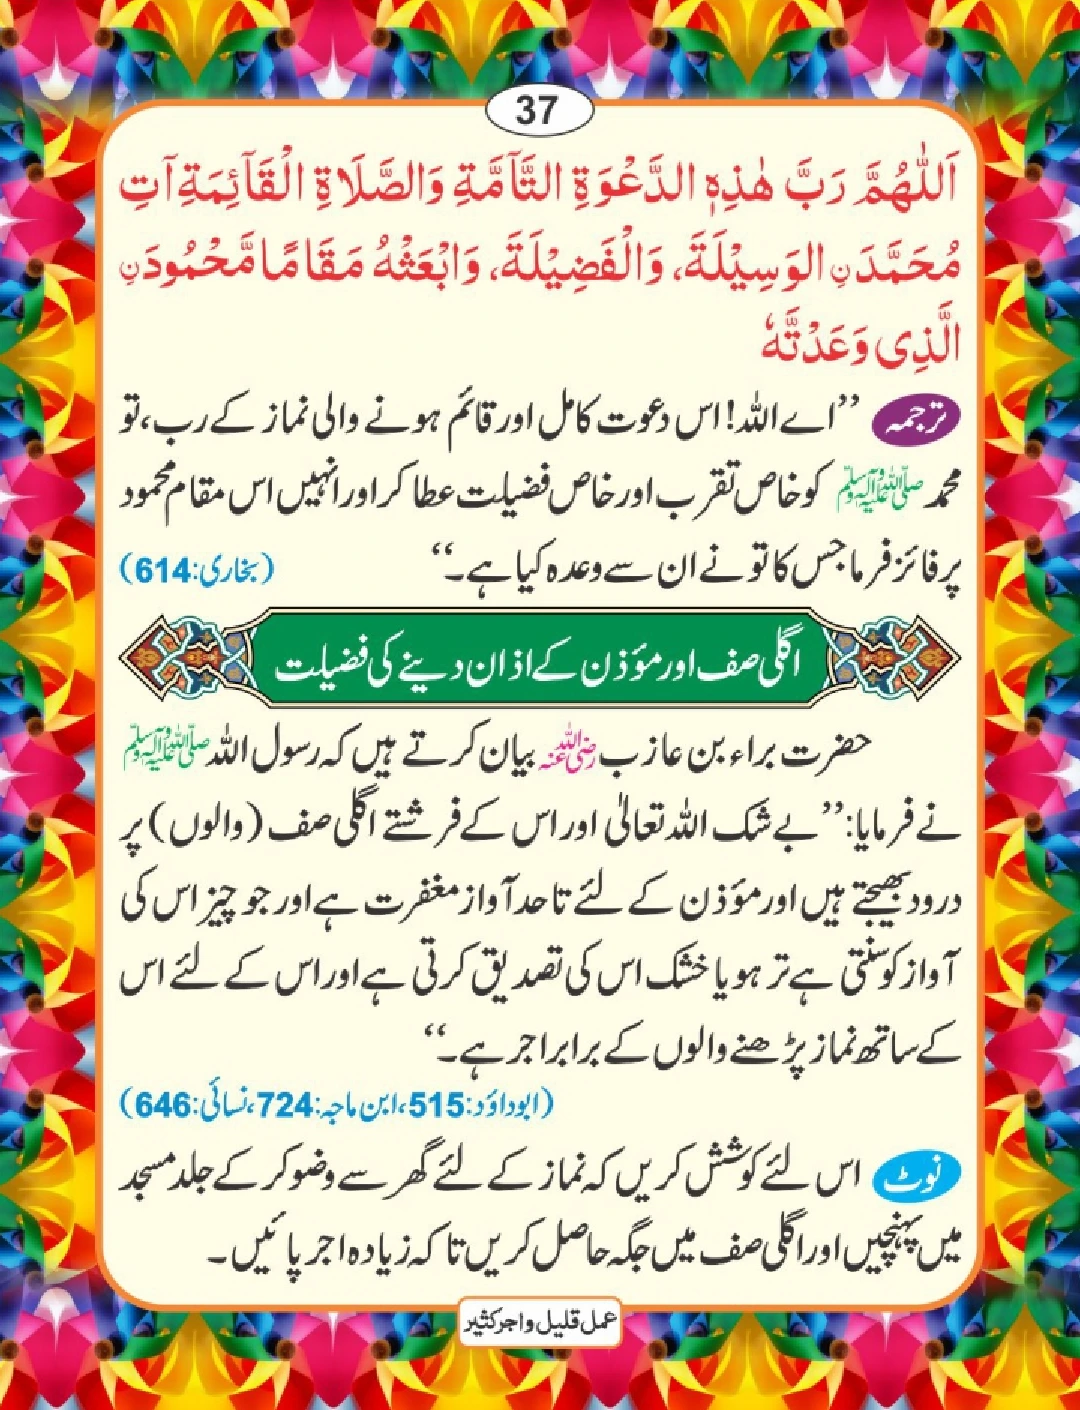 37
اَللّٰهُمَّ رَبَّ هٰذِهِ الدَّعْوَةِ التَّآمَّةِ وَالصَّلَاةِ الْقَآئِمَةِ آتِ
مُحَمَّدَنِ الوَسِيْلَةَ، وَالْفَضِيْلَةَ، وَابْعَثْهُ مَقَامًا مَّحْمُودَنِ
الَّذِی وَعَدْتَّهٗ
ترجمہ ’’اے اللہ! اس دعوت کامل اور قائم ہونے والی نماز کے رب، تو
محمد صلی اللہ علیہ وآلہ وسلم کو خاص تقرب اور خاص فضیلت عطا کر اور انہیں اس مقام محمود
پر فائز فرما جس کا تو نے ان سے وعدہ کیا ہے۔‘‘ (بخاری:614)
اگلی صف اور مؤذن کے اذان دینے کی فضیلت
حضرت براء بن عازب رضی اللہ عنہ بیان کرتے ہیں کہ رسول اللہ صلی اللہ علیہ وآلہ وسلم
نے فرمایا: ’’بے شک اللہ تعالٰی اور اس کے فرشتے اگلی صف (والوں) پر
درود بھیجتے ہیں اور مؤذن کے لئے تا حد آواز مغفرت ہے اور جو چیز اس کی
آواز کو سنتی ہے تر ہو یا خشک اس کی تصدیق کرتی ہے اور اس کے لئے اس
کے ساتھ نماز پڑھنے والوں کے برابر اجر ہے۔‘‘
(ابوداؤد:515، ابن ماجہ:724، نسائی:646)
نوٹ اس لئے کوشش کریں کہ نماز کے لئے گھر سے وضو کر کے جلد مسجد
میں پہنچیں اور اگلی صف میں جگہ حاصل کریں تا کہ زیادہ اجر پائیں۔
عمل قلیل و اجر کثیر